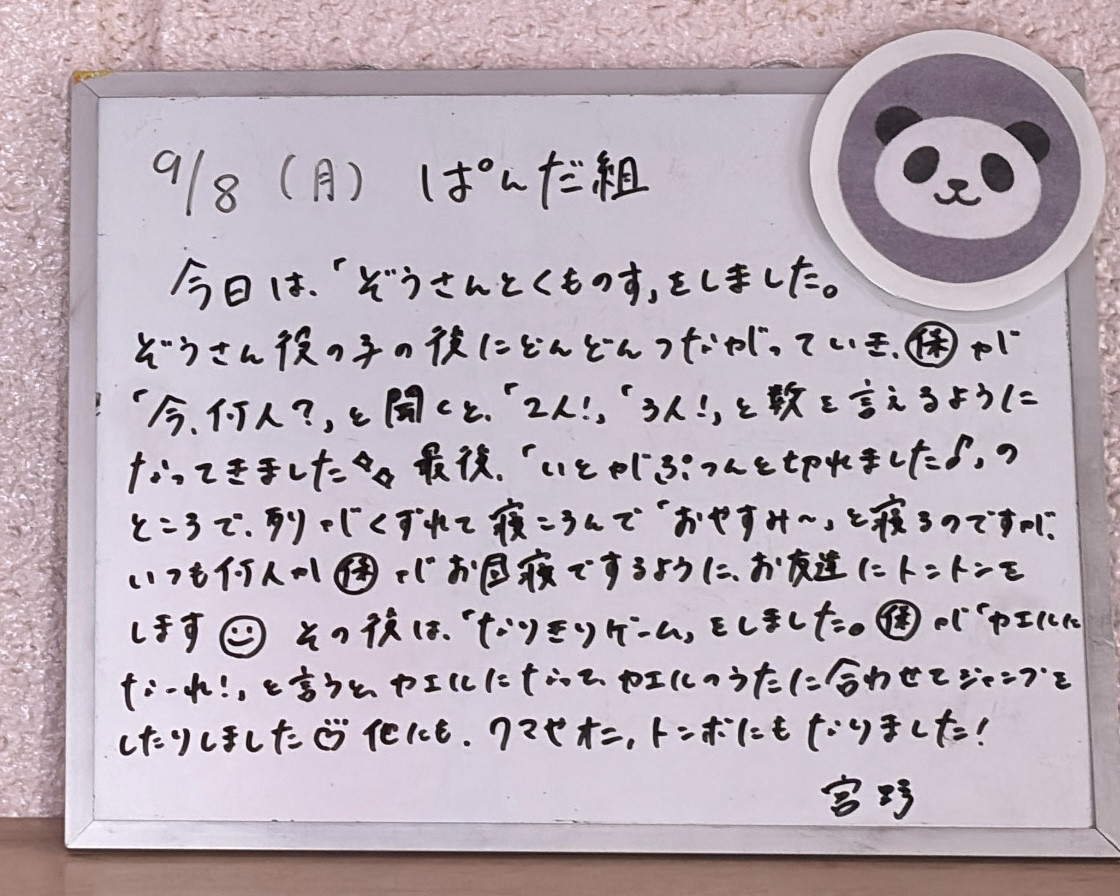 9/8 (月) ぱんだ組
今日は、「ぞうさんとくものす」をしました。
ぞうさん役の子の後にどんどんつながっていき、㊡が
「今、何人?」と聞くと、「2人!」「3人!」と数を言えるように
なってきました✧✧ 最後、「いとがぷつんと切れました♪」の
ところで、列がくずれて寝ころんで「おやすみ~」と寝るのですが、
いつも何人か㊡がお昼寝でするように、お友達にトントンを
します☺ その後は、「なりきりゲーム」をしました。㊡が「カエルに
なーれ!」と言うと、カエルになって、カエルのうたに合わせてジャンプを
したりしました♡ 他にも、クマやオニ、トンボにもなりました!
宮野